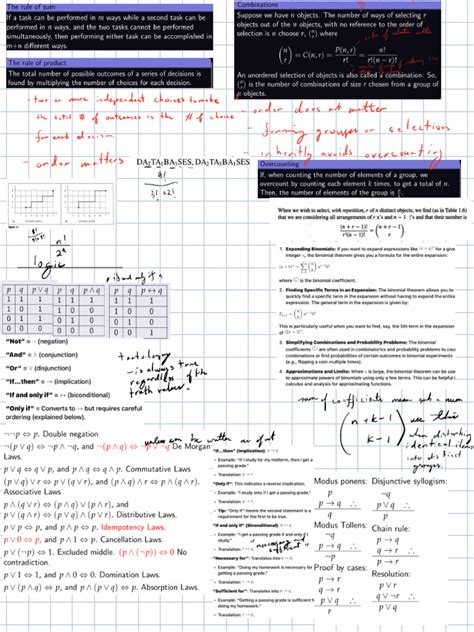 The rule of sum
If a task can be performed in m ways while a second task can be
performed in n ways, and the two tasks cannot be performed
simultaneously, then performing either task can be accomplished in
m+n different ways.
The rule of product
The total number of possible outcomes of a series of decisions is
found by multiplying the number of choices for each decision.
- two or more independent choices to make
the total # of outcomes is the # of choice
for each decision
- order matters
DA₂TA₁BA₁SES, DA₂TA₁BA₄SES
Combinations
Suppose we have n objects. The number of ways of selecting r
objects out of the n objects, with no reference to the order of
selection is n choose r, (n r) where
(n r) = C(n, r) = P(n, r) / r! = n! / r!(n − r)!
An unordered selection of objects is also called a combination. So,
(n r) is the number of combinations of size r chosen from a group of
n objects.
- order does not matter
- forming groups or selections
- inheritly avoids overcounting
Overcounting
If, when counting the number of elements of a group, we
overcount by counting each element k times, to get a total of n.
Then, the number of elements in the group is n/k.
When we wish to select, with repetition, r of n distinct objects, we find (as in Table 1.6)
that we are considering all arrangements of r x's and n − 1 |'s and that their number is
(n + r − 1)! / r!(n − 1)! = (n + r − 1 r)
1. Expanding Binomials: If you want to expand expressions like for a given
integer n, the binomial theorem gives you a formula for the entire expansion:
where is the binomial coefficient.
2. Finding Specific Terms in an Expansion: The binomial theorem allows you to
quickly find a specific term in the expansion without having to expand the entire
expression. The general term in the expansion is given by:
This is particularly useful when you want to find, say, the 5th term in the expansion
3. Simplifying Combinations and Probability Problems: The binomial
coefficients are often used in combinatorics and probability problems to count
combinations or find probabilities of certain outcomes in binomial experiments
(e.g., flipping a coin multiple times).
4. Approximations and Limits: When n is large, the binomial theorem can be used
to approximate powers of binomials using only a few terms. This can be helpful in
calculus and analysis for approximating functions.
sum of coefficients means sub a num
(n + k − 1 k − 1)
use this
when disturbing
identical items
into distinct
groups.
9!
3! × 2!
n!
2ˣ
logic
p q p∨q p∧q
1 1 1 1
1 0 1 0
0 1 1 0
0 0 0 0
p if and only if q
p q p↔q
1 1 1
1 0 0
0 1 0
0 0 1
"Not" = ¬ (negation)
"And" = ∧ (conjunction)
"Or" = ∨ (disjunction)
"If...then" = → (implication)
"If and only if" = ↔ (biconditional)
"Only if" = Converts to → but requires careful
ordering (explained below).
tautology
- is always true
regardless of the
truth values.
¬¬p ⇔ p. Double negation
¬(p ∨ q) ⇔ ¬p ∧ ¬q, and ¬(p ∧ q) ⇔ ¬p ∨ ¬q De Morgan
Laws.
p ∨ q ⇔ q ∨ p, and p ∧ q ⇔ q ∧ p. Commutative Laws
(p ∨ q) ∨ r ⇔ p ∨ (q ∨ r), and (p ∧ q) ∧ r ⇔ p ∧ (q ∧ r).
Associative Laws
p ∧ (q ∨ r) ⇔ (p ∧ q) ∨ (p ∧ r), and
p ∨ (q ∧ r) ⇔ (p ∨ q) ∧ (p ∨ r). Distributive Laws.
p ∨ p ⇔ p, and p ∧ p ⇔ p. Idempotency Laws.
p ∨ 0 ⇔ p, and p ∧ 1 ⇔ p. Cancellation Laws.
p ∨ (¬p) ⇔ 1. Excluded middle. (p ∧ (¬p)) ⇔ 0 No
contradiction.
p ∨ 1 ⇔ 1, and p ∧ 0 ⇔ 0. Domination Laws.
p ∧ (p ∨ q) ⇔ p, and p ∨ (p ∧ q) ⇔ p. Absorption Laws.
unless can be written as if not
"If...then" (Implication)
- Example: "If I study for my midterm, then I get a
passing grade."
- Translation:
"Only if". This indicates a reverse implication.
- Example: "I study only if I get a passing grade."
- Translation:
- Tip: "Only if" means the second statement is a
requirement for the first to be true.
"If and only if" (Biconditional)
- Example: "I get a passing grade if and only if I
study."
- Translation:
necessary and
sufficient
"Necessary for": Translates into
- Example: "Doing my homework is necessary for
getting a passing grade."
- Translation:
"Sufficient for": Translates into
- Example: "Getting a passing grade is sufficient for
doing my homework."
- Translation:
Modus ponens:
p → q
p ∴ q
Modus Tollens:
p → q
¬q ∴ ¬p
Proof by cases:
p → r
q → r
p ∨ q ∴ r
Disjunctive syllogism:
p ∨ q
¬q ∴ p
Chain rule:
p → q
q → r
p → r
Resolution:
p ∨ r
q ∨ ¬r
p ∨ q ∴